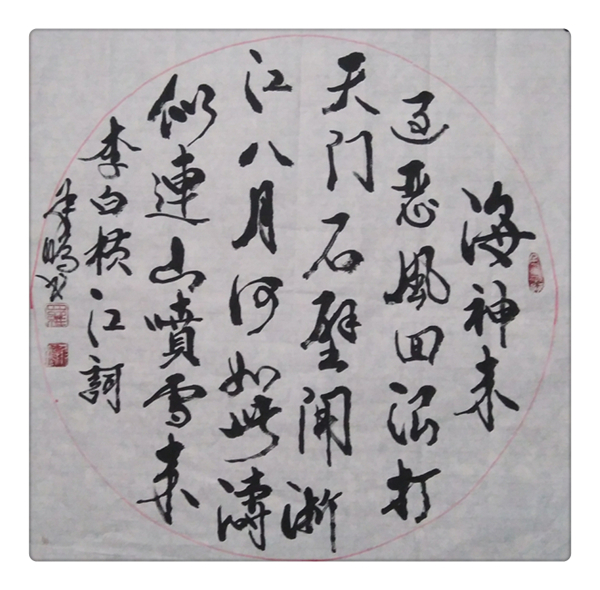 海神来
过恶風回浪打
天门石壁開浙
江八月何如此濤
似連山噴雪来
李白横江詞